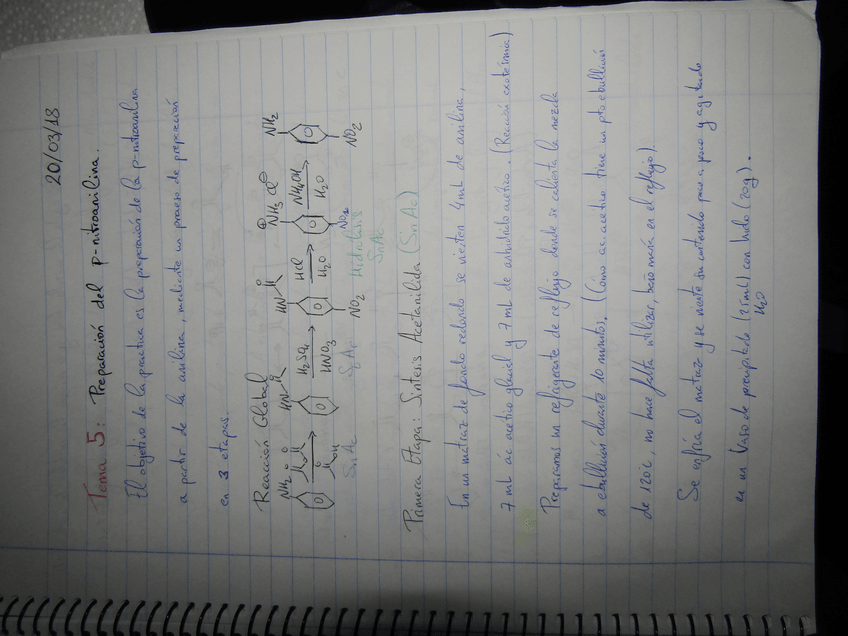 20/03/18
Tema 5: Preparación del p-nitroanilina.
El objetivo de la práctica es la preparación de la p-nitroanilina
a partir de la anilina, mediante un proceso de preparación
en 3 etapas.
Reacción Global
NH2 O O O OH HN O H2SO4 HNO3 HN O NO2 HCl H2O ⊕NH3 Cl⊖ NO2 NH4OH H2O NH2 NO2
SnAc SEAc Hidrolisis
SnAc
Primera Etapa: Síntesis Acetanilida (SnAc)
En un matraz de fondo redondo se vierten 4mL de anilina,
7 mL ác acético glacial y 7 mL de anhídrido acético. (Reacción exotérmica)
Preparamos un refrigerante de reflujo donde se calienta la mezcla
a ebullición durante 10 minutos. (Como ac. acético tiene un pto ebullición
de 120ºC, no hace falta utilizar, en el reflujo).
Se enfría el matraz y se vierte su contenido poco a poco y agitando
en un Vaso de precipitado (25mL) con hielo (20g).
H2O